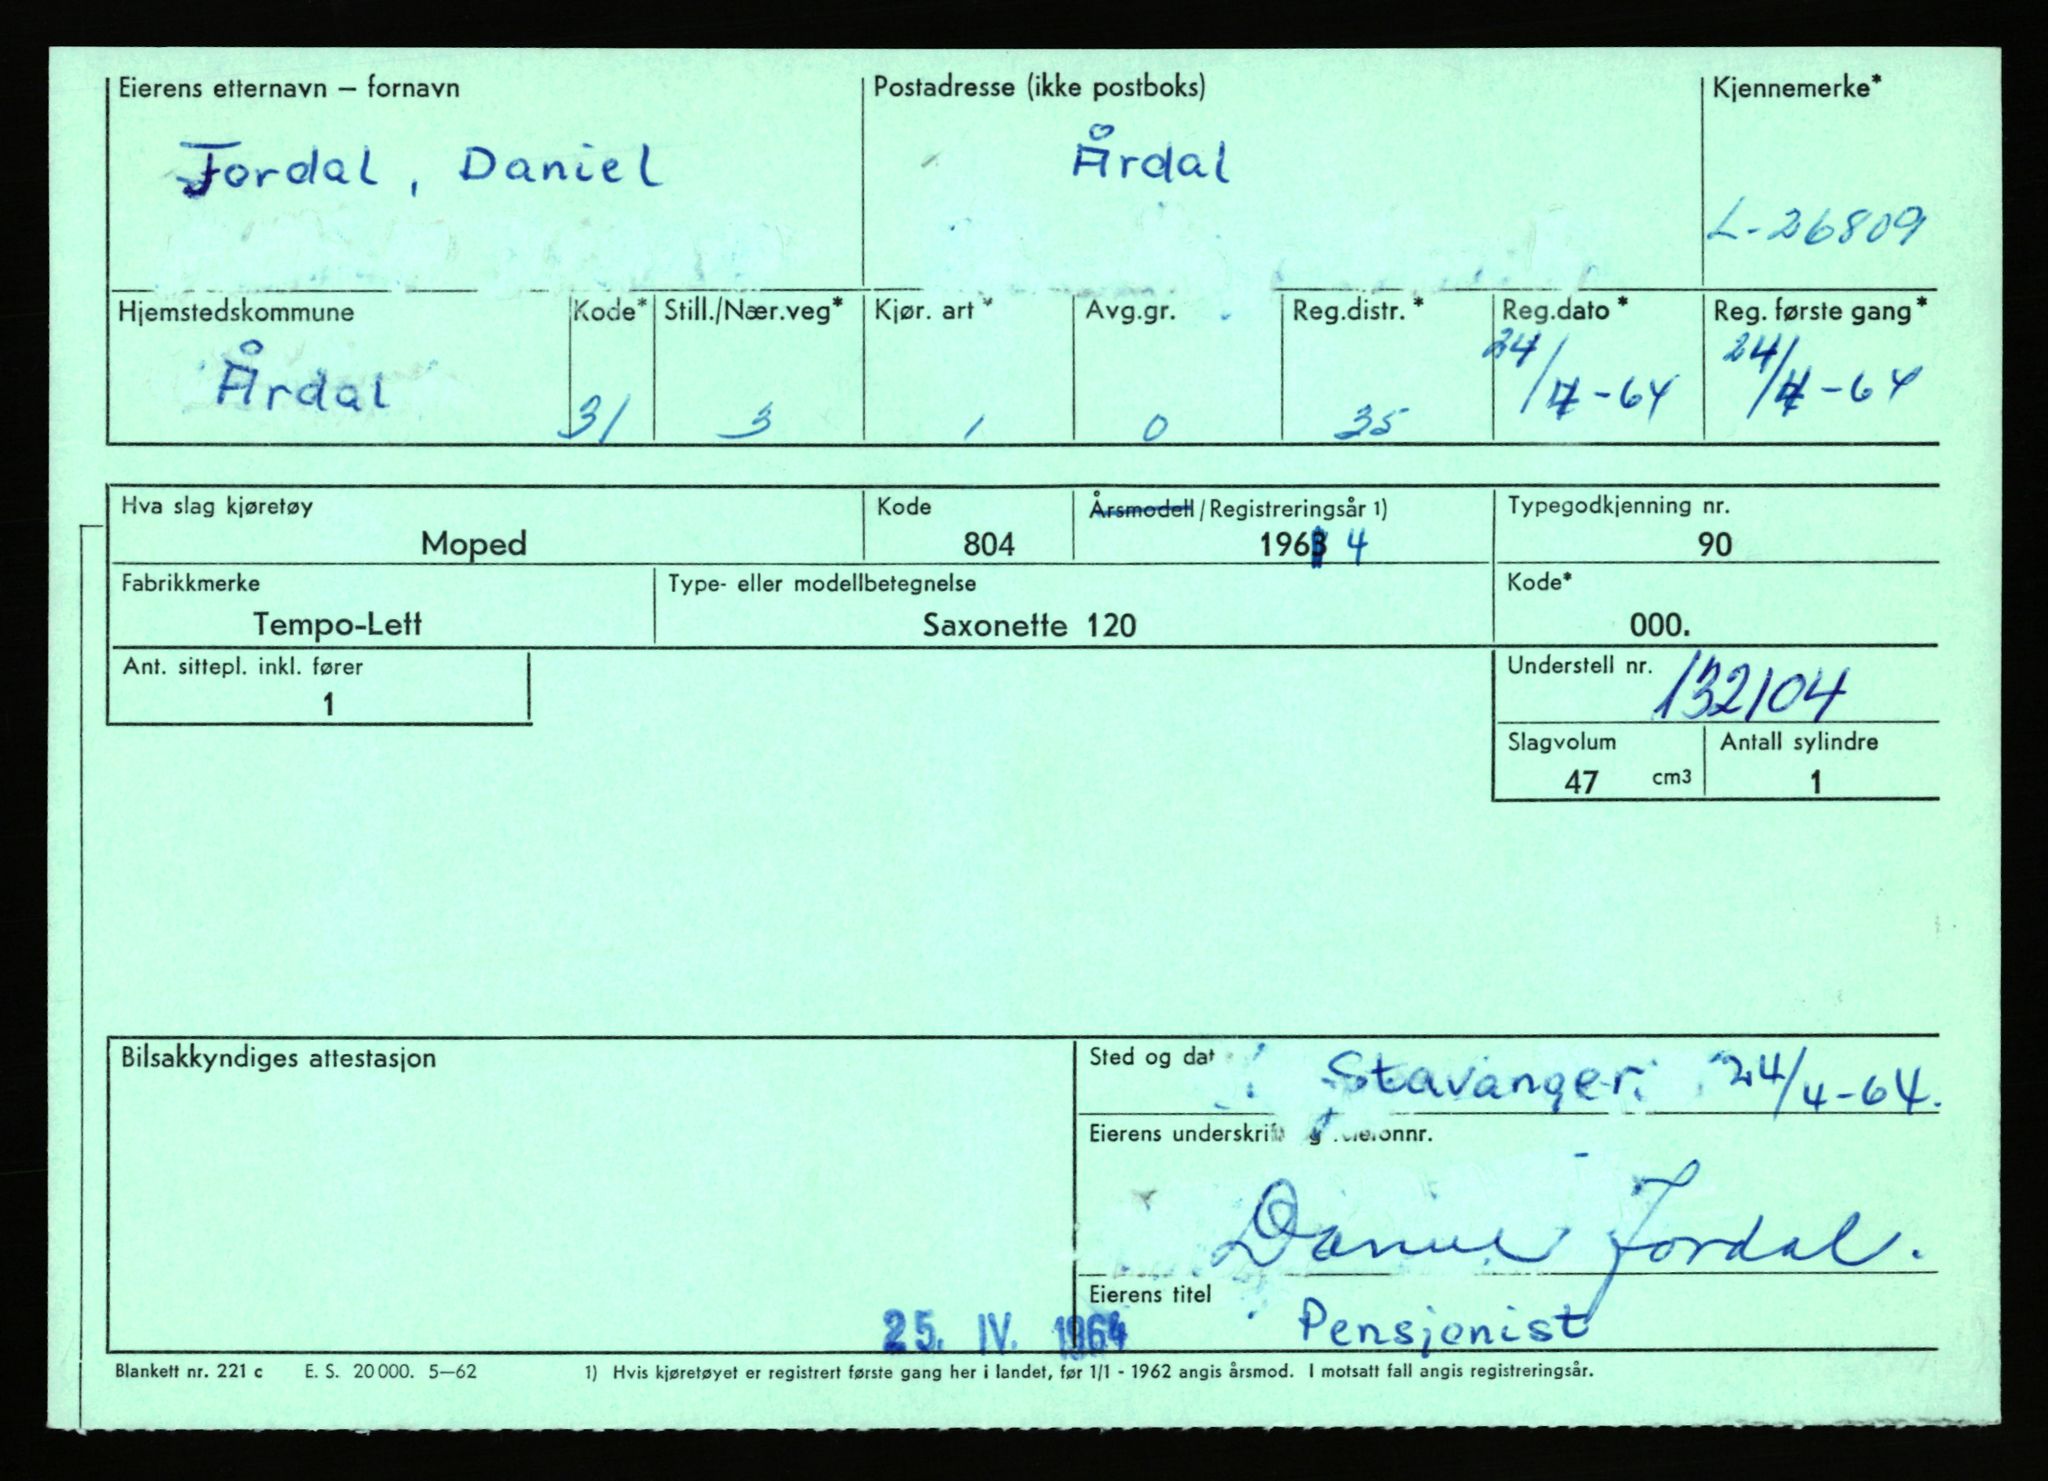 Eierens etternavn – fornavn Postadresse (ikke postboks) Kjennemerke*
Jordal, Daniel Årdal
L-26809
Hjemstedskommune Kode* Still./Nær.veg* Kjør. art* Avg.gr. Reg.distr.* Reg.dato* Reg. første gang*
Årdal 31 3 1 0 35 24/4-64 24/4-64
Hva slag kjøretøy Kode Årsmodell / Registreringsår 1) Typegodkjenning nr.
Moped 804 1963 4 90
Fabrikkmerke Type- eller modellbetegnelse Kode*
Tempo-Lett Saxonette 120 000.
Ant. sittepl. inkl. fører Understell nr. 132104
1
Slagvolum Antall sylindre
47 cm3 1
Bilsakkyndiges attestasjon Sted og dat Stavanger. 24/4-64.
Eierens underskri g lefonnr.
Daniel Jordal.
Eierens titel
Pensjonist
25. IV. 1964
Blankett nr. 221 c E. S. 20000. 5–62 1) Hvis kjøretøyet er registrert første gang her i landet, før 1/1 - 1962 angis årsmod. I motsatt fall angis registreringsår.